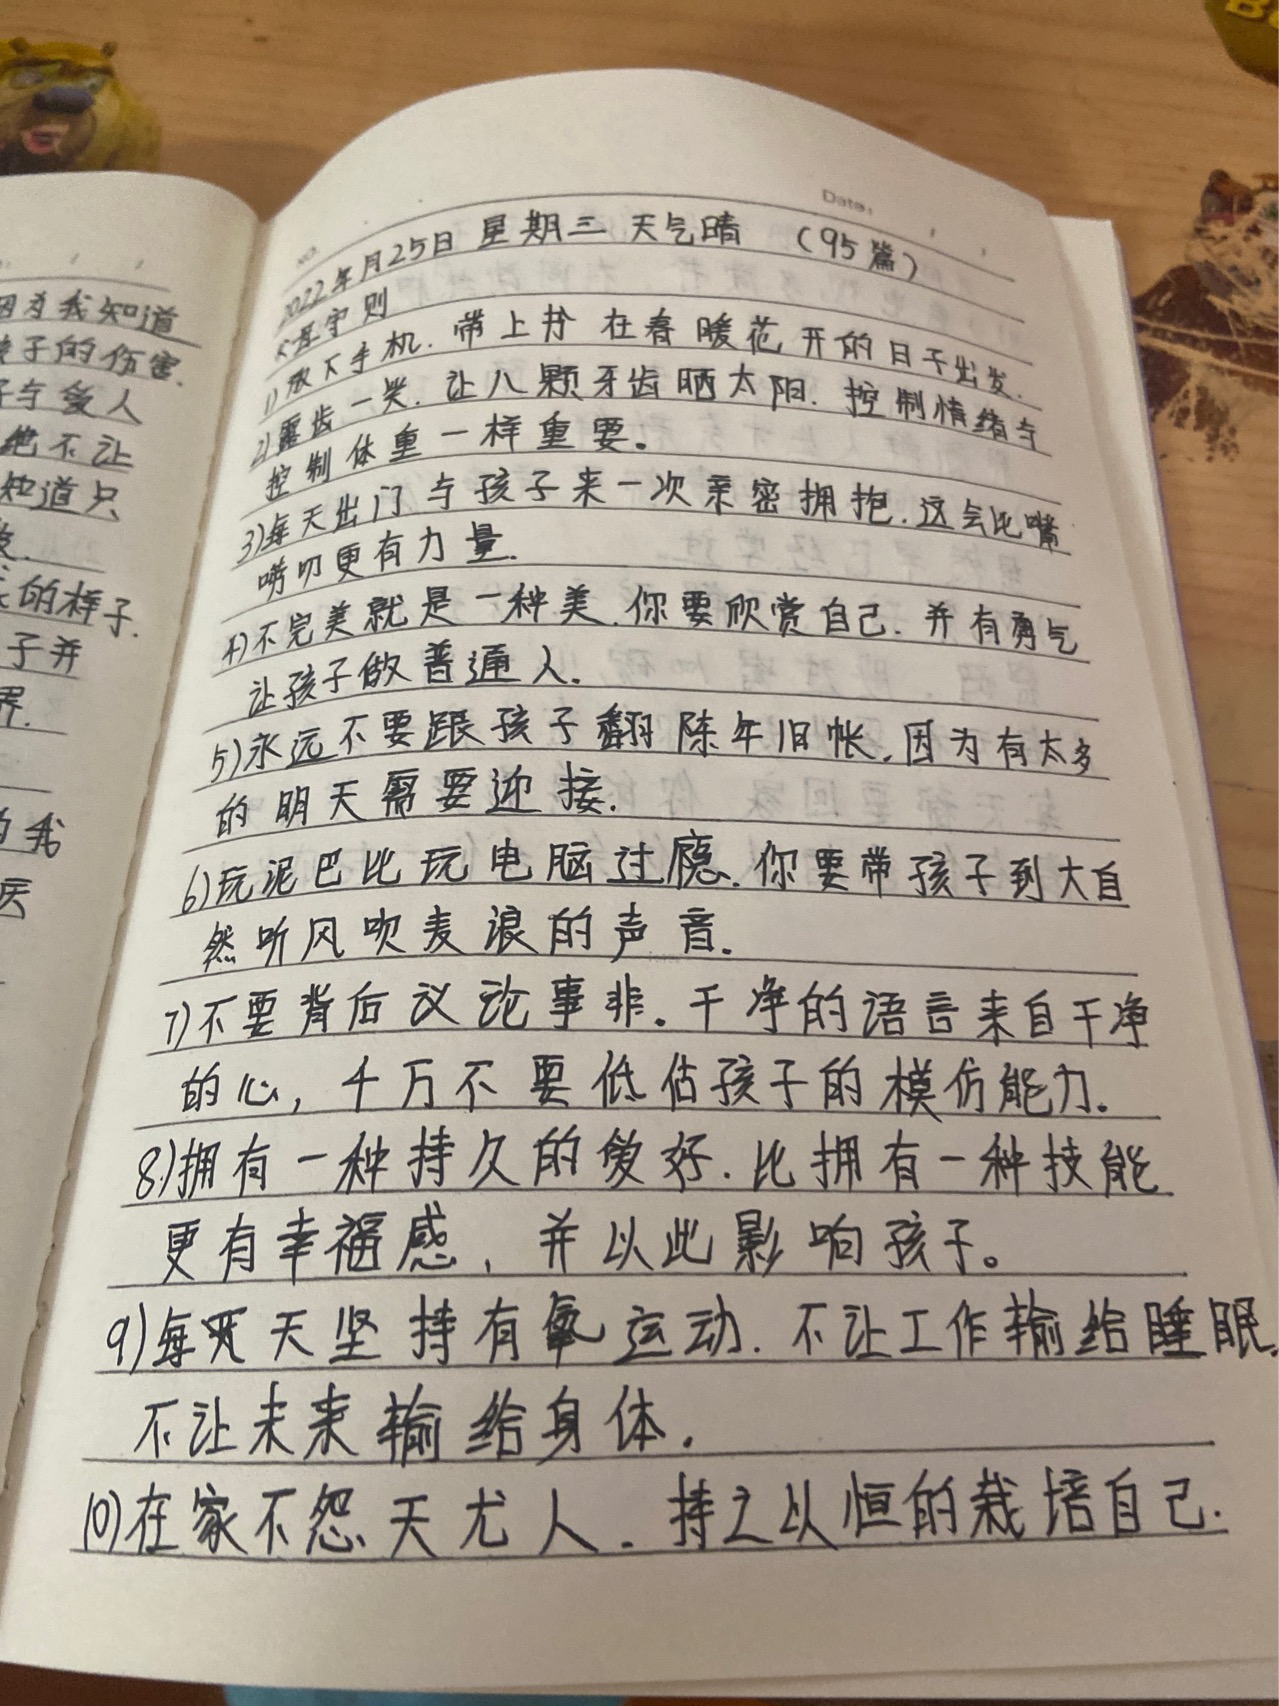 因为我知道
孩子的伤害.
子与爱人
绝不让
知道只
的样子.
子并
界.
的我
医
Date:
NO.
2022年月25日 星期三 天气晴 (95篇)
守则
1)放下手机. 带上 在春暖花开的日子出发.
2)露齿一笑. 让八颗牙齿晒太阳. 控制情绪与
控制体重一样重要。
3)每天出门与孩子来一次亲密拥抱. 这会比嘴
唠叨更有力量.
4)不完美就是一种美. 你要欣赏自己. 并有勇气
让孩子做普通人.
5)永远不要跟孩子翻陈年旧帐. 因为有太多
的明天需要迎接.
6)玩泥巴比玩电脑过瘾. 你要带孩子到大自
然听风吹麦浪的声音.
7)不要背后议论事非. 干净的语言来自干净
的心, 千万不要低估孩子的模仿能力.
8)拥有一种持久的爱好. 比拥有一种技能
更有幸福感, 并以此影响孩子。
9)每天坚持有氧运动. 不让工作输给睡眠.
不让未来输给身体.
10)在家不怨天尤人. 持之以恒的栽培自己.